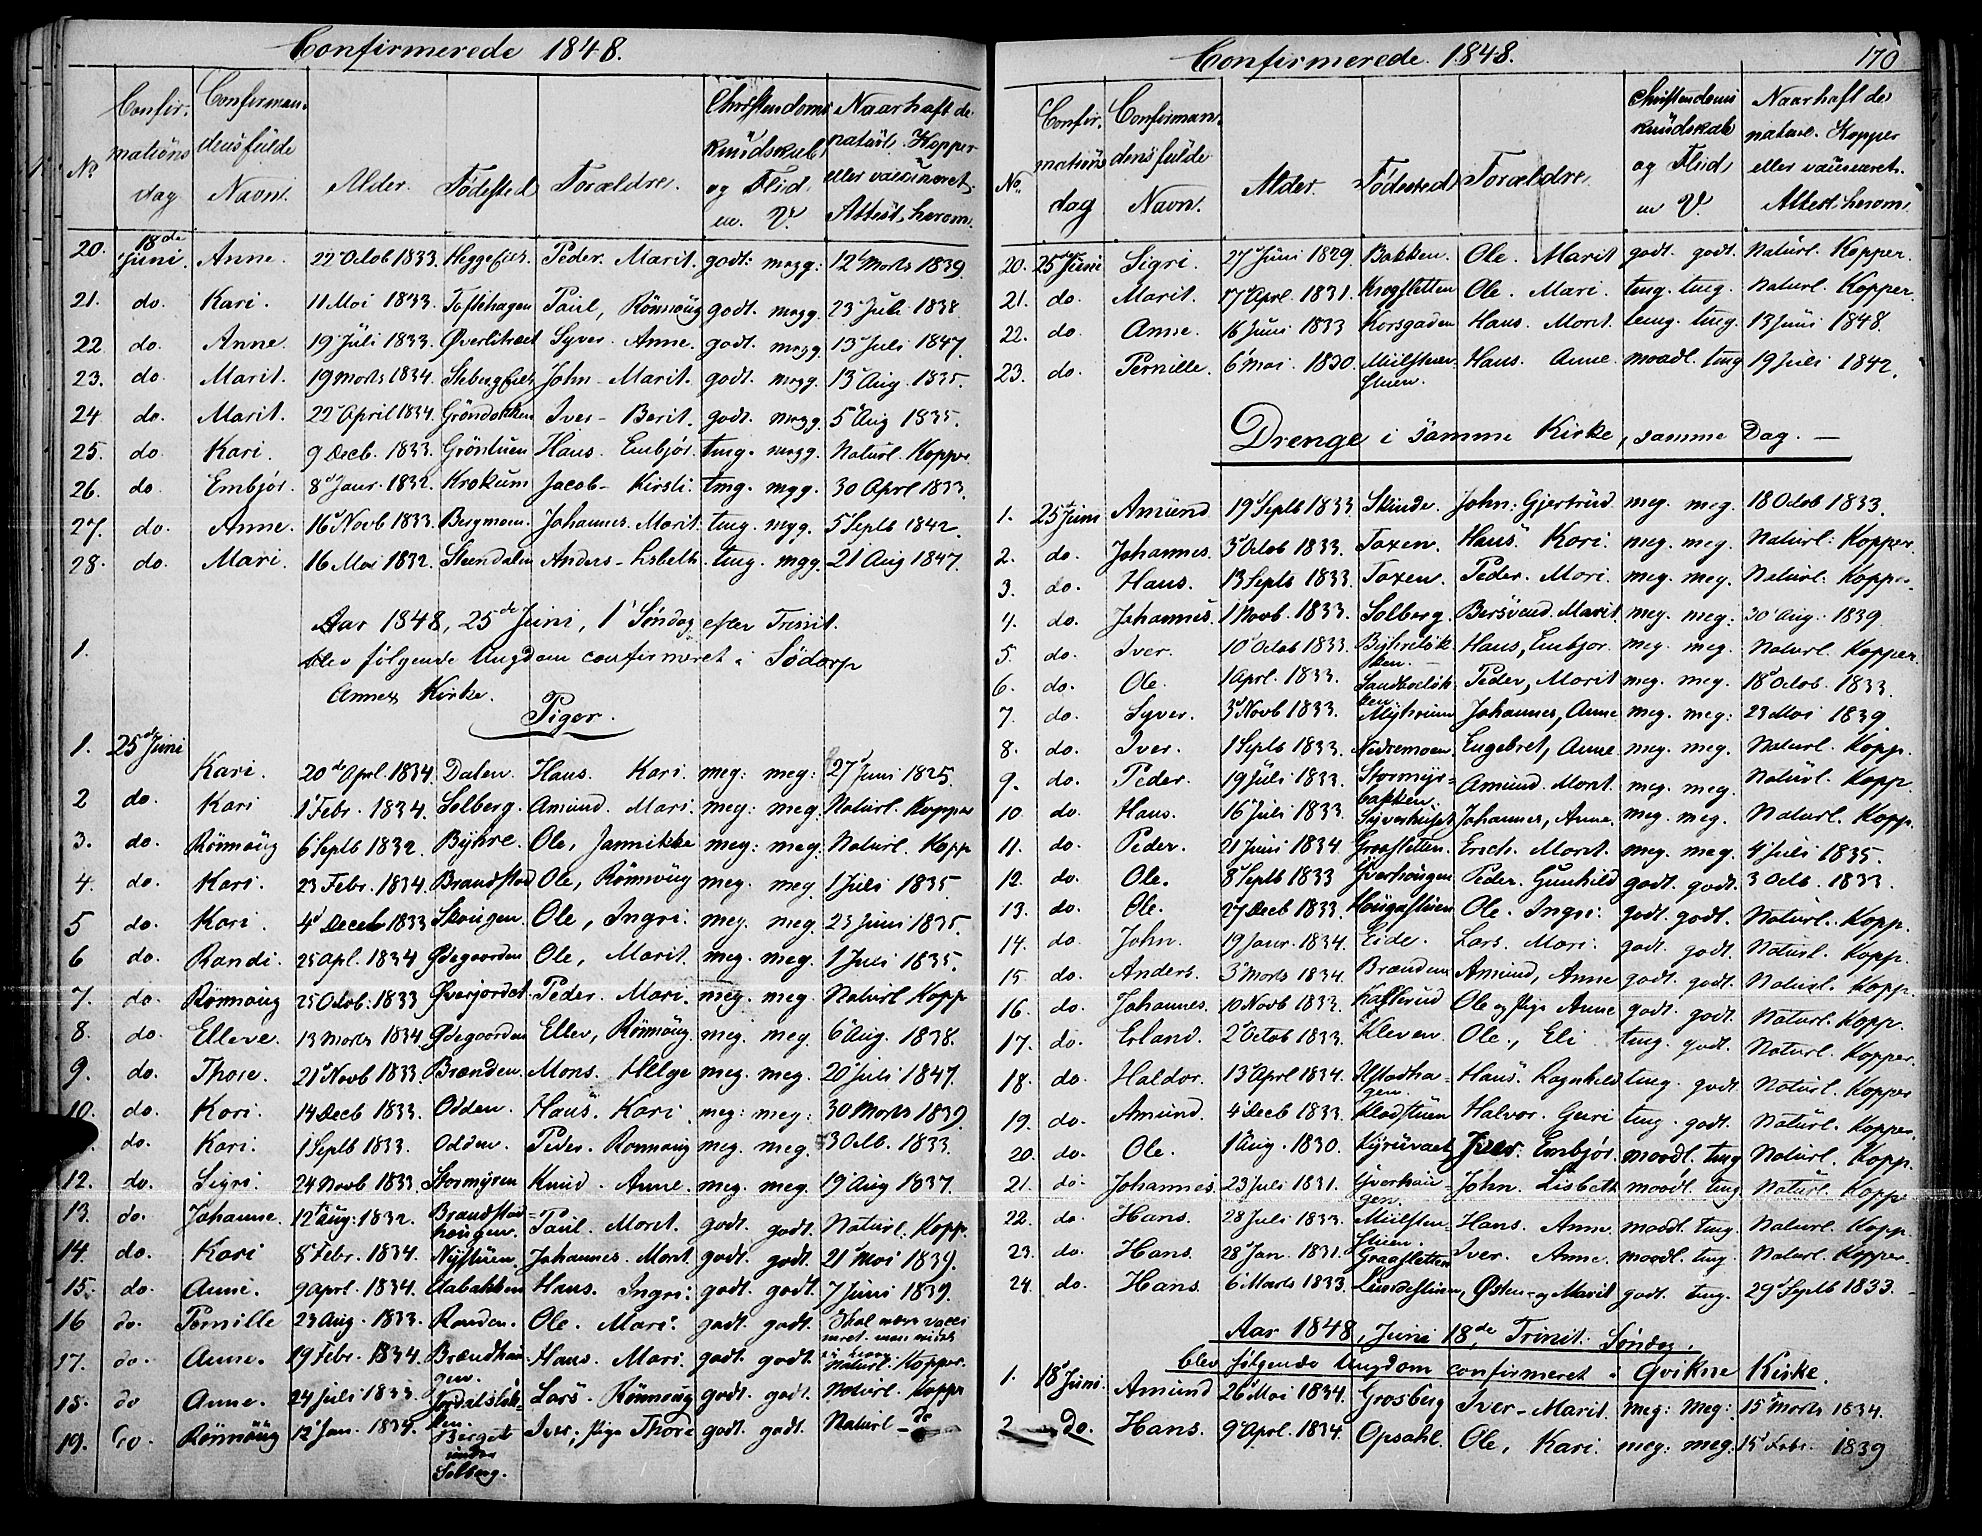 Confirmerede 1848.
No. Confirmations dag Confirmandens fulde Navn. Alder. Fødested Forældre. Christendoms kundskab og Flid en V. Naar haft de naturl. Kopper eller vaccineret. Attest herom.
20. 18de Juni. Anne. 22 Octob 1833. Heggeeier Peder. Marit. godt: megg: 12 Morts 1839
21. do. Kari. 11 Mai 1833. Toftehagen Paul, Rönnoug godt. megg. 23 Juli 1838
22 do. Anne. 19 Juli 1833. Øverlihaet Syver. Anne. godt. megg. 13 Juli 1847.
23. do. Marit. 19 Morts 1834. Stebergeier John - Marit. godt. megg. 13 Aug. 1835.
24 do. Marit. 22 April 1834. Gröndokken Iver - Berit. godt. megg. 5 Aug 1835.
25. do. Kari. 9 Decb. 1833. Gröntuen Hans. Embjør. tmg. megg. Naturl. Kopper
26. do. Embjör. 8 Janr. 1832. Krokum Jacob - Kirsti. tmg. mgg. 30 Aprl 1833.
27. do. Anne. 16 Novb 1833. Bergmoen. Johannes. Marit. tmg. megg. 5 Septb 1842.
28. do. Mari. 16 Mai 1832. Steendalen Anders - Lisbeth. tmg. mgg. 21 Aug 1847.
1. Aar 1848, 25de Juni, 1 Søndag efter Trinit.
blev følgende Ungdom confirmeret i Södorp
Annex Kirke.
Piger.
1. 25de Juni Kari. 20de Aprl. 1834. Dalen. Hans. Kari meg: meg: 27 Juni 1825
2 do. Kari 1 Febr. 1834. Solberg. Amund. Mari. meg: meg. Naturl. Kopper
3. do. Rönnoug 6 Septb 1832. Byhre. Ole, Jannikke meg: meg: Naturl. Kopp
4. do. Kari. 23 Febr. 1834. Brandstad Ole, Rönnoug meg. meg 1 Juli 1835
5 do. Kari. 4 Deceb 1833 Skougen. Ole, Ingri. meg. meg. 23 Juni 1835.
6 do. Randi. 25 Apl. 1834 Ødegaarden Ole, Marit. meg. meg. 1 Juli 1835.
7. do. Rönnoug 25 Octob. 1833 Øverjordet Peder. Mari. meg. meg. Naturl Kopp
8. do. Elleve. 13 Morts 1834. Ødegaarden Ellev, Rönnoug meg. meg. 6 Aug. 1838.
9. do. Thore. 21 Novb 1833. Brænden. Mons. Helge meg. meg. 20 Juli 1847.
10. do. Kari. 14 Decb 1833. Odden. Hans. Kari. meg: meg: 30 Morts 1839
do. Kari. 1 Septb 1833. Odden. Peder. Ronnoug meg. meg. 3 Octb. 1833.
12. do. Sigri. 24 Novb 1833. Stormyren Knud. Anne. meg. meg. 19 Aug 1837.
13. do. Johanne. 12 Aug: 1832. Brandstadhougen. Paul. Moret. godt. godt. Naturl. Kopp.
14. do. Kari 8 Febr. 1834. Nystuen. Johannes. Moret godt. godt. 21 Mai 1839.
15. do. Anne. 9 Aprl. 1834. Aabakken Hans. Ingri: godt. godt. 7 Juni 1839.
16 do. Pernille 23 Aug. 1833. Randen. Ole. Mari. godt. godt. Skal være vaccineret. men
17. do. Anne. 19 Febr. 1834. Brændhaugen. Hans. Mari. godt. godt. Naturl. Kopper.
18. do Anne. 24 Juli 1833. Lars. Rönnoug godt. godt. Naturl. Kopper
19. do. Rönnoug 12 Jan. 1834. Berget under Solberg. Iver, Pige Thore godt. godt. Naturl - do
Confirmerede 1848.
170
No. Confirmations dag Confirmandens fulde Navn. Alder. Fødested Forældre Christendoms kundskab og Flid en V. Naar haft de naturl. Kopper eller vaccineret. Attest herom.
20. 25 Juni Sigri. 27 Juni 1829. Bakken. Ole. Marit godt. godt. Naturl. Kopper.
21. do. Marit. 17 Aprl. 1831. Krogsletten Ole. Mari. tmg. tmg. Naturl. Kopper.
22. do. Anne. 16 Juni 1833 Korsgaden Hans. Moret. temg. tmg. 13 Juni 1848.
23. do. Pernille. 6 Mai. 1830. Hans. Anne. moadl. tmg 19 Juli 1842.
Drenge i samme Kirke, samme Dag. —
1. 25 Juni Amund 19 Septb 1833 Skinde. John: Gjertrud meg. meg. 18 Octob 1833.
2. do. Johannes. 3 Octob 1833. Toxen. Hans. Kari. meg. meg. Naturl. Kopper
3. do. Hans. 13 Septb 1833. Toxen. Peder. Mori. meg. meg. Naturl. Kopper
4. do. Johannes. 1 Novb. 1833. Solberg. Bersvend. Marit meg. meg. 30 Aug. 1839
5. do. Iver. 10 Octob 1833. Byhrelökken. Hans, Embjor. meg. meg. Naturl. Kopper.
6. do. Ole. 1 Aprl. 1833. Sandboløkken Peder, Marit meg. meg. 18 Octob. 1833.
7. do. Syver. 3 Novb 1833. Myhrum Johannes, Anne meg. meg: 23 Mai 1839
8. do. Iver. 1 Septb 1833. Nedremoen. Engebret, Anne meg. meg. Naturl. Kopp.
9. do. Peder. 19 Juli 1833. Stormyrbakken. Amund. Moret. meg. meg. Naturl. Kopp
10 do. Hans. 16 Juli 1833. Syverhuset Johannes, Anne. meg. meg. Naturl. Kopp.
11. do. Peder. 21 Juni 1834. Graasletten. Erich. Moret. meg. meg. 4 Juli 1835.
12. do. Ole. 8 Septb 1833 Gverhougen Peder. Gunhild godt. godt. 3 Octb. 1833.
13. do. Ole. 27 Decb 1833. Hougastuen Ole. Ingri. godt. godt. Naturl. Kopp.
14. do. John. 19 Janr. 1834. Eide. Lars. Mari. godt. godt. Naturl. Kopp.
15. do. Anders. 3 Morts 1834. Brænden Amund, Anne godt. godt. Naturl. Kopp.
16. do. Johannes. 10 Novb 1833. Kasterud Ole og Pige Anne godt. godt. Naturl. Kopp.
17. do. Erland. 2 Octob 1833. Kleven. Ole, Eli tmg. godt. Naturl. Kopper.
18. do. Haldor. 13 Aprl 1834. Ulstadhagen. Hans. Ragnhild tmg. godt Naturl. Kopper
19. do. Amund. 4 Decb 1833. Klodstuen Halvor. Guri tmg. godt. Naturl. Kopper.
20. do. Ole. 1 Aug. 1830. Iver. Embjør. moadl. tmg Naturl. Kopp.
21. do. Johannes. 23 Juli 1831. Gverhaugen. John. Lisbeth moadl. tmg Naturl. Kopper
22. do. Hans. 28 Juli 1833. Hans. Anne. moadl. tmg. Naturl. Kopp.
23. do. Hans. 28 Jan. 1831. Graasletten Iver. Anne. moadl. tmg. Naturl. Kopper.
24. do. Hans. 6 Morts 1833. Lundestuen, Østen og Marit godt. tmg. 29 Septb 1833.
Aar 1848, Juni 18de Trinit. Søndag.
blev følgende Ungdom confirmeret i Qvikne Kirke.
1. 18 Juni. Amund 26 Mai 1834. Grosberg Iver - Marit. Meg: Meg: 15 Morts 1834.
2 do. Hans. 9 Aprl. 1834. Opsahl. Ole, Kari. meg: meg: 15 Febr. 1839